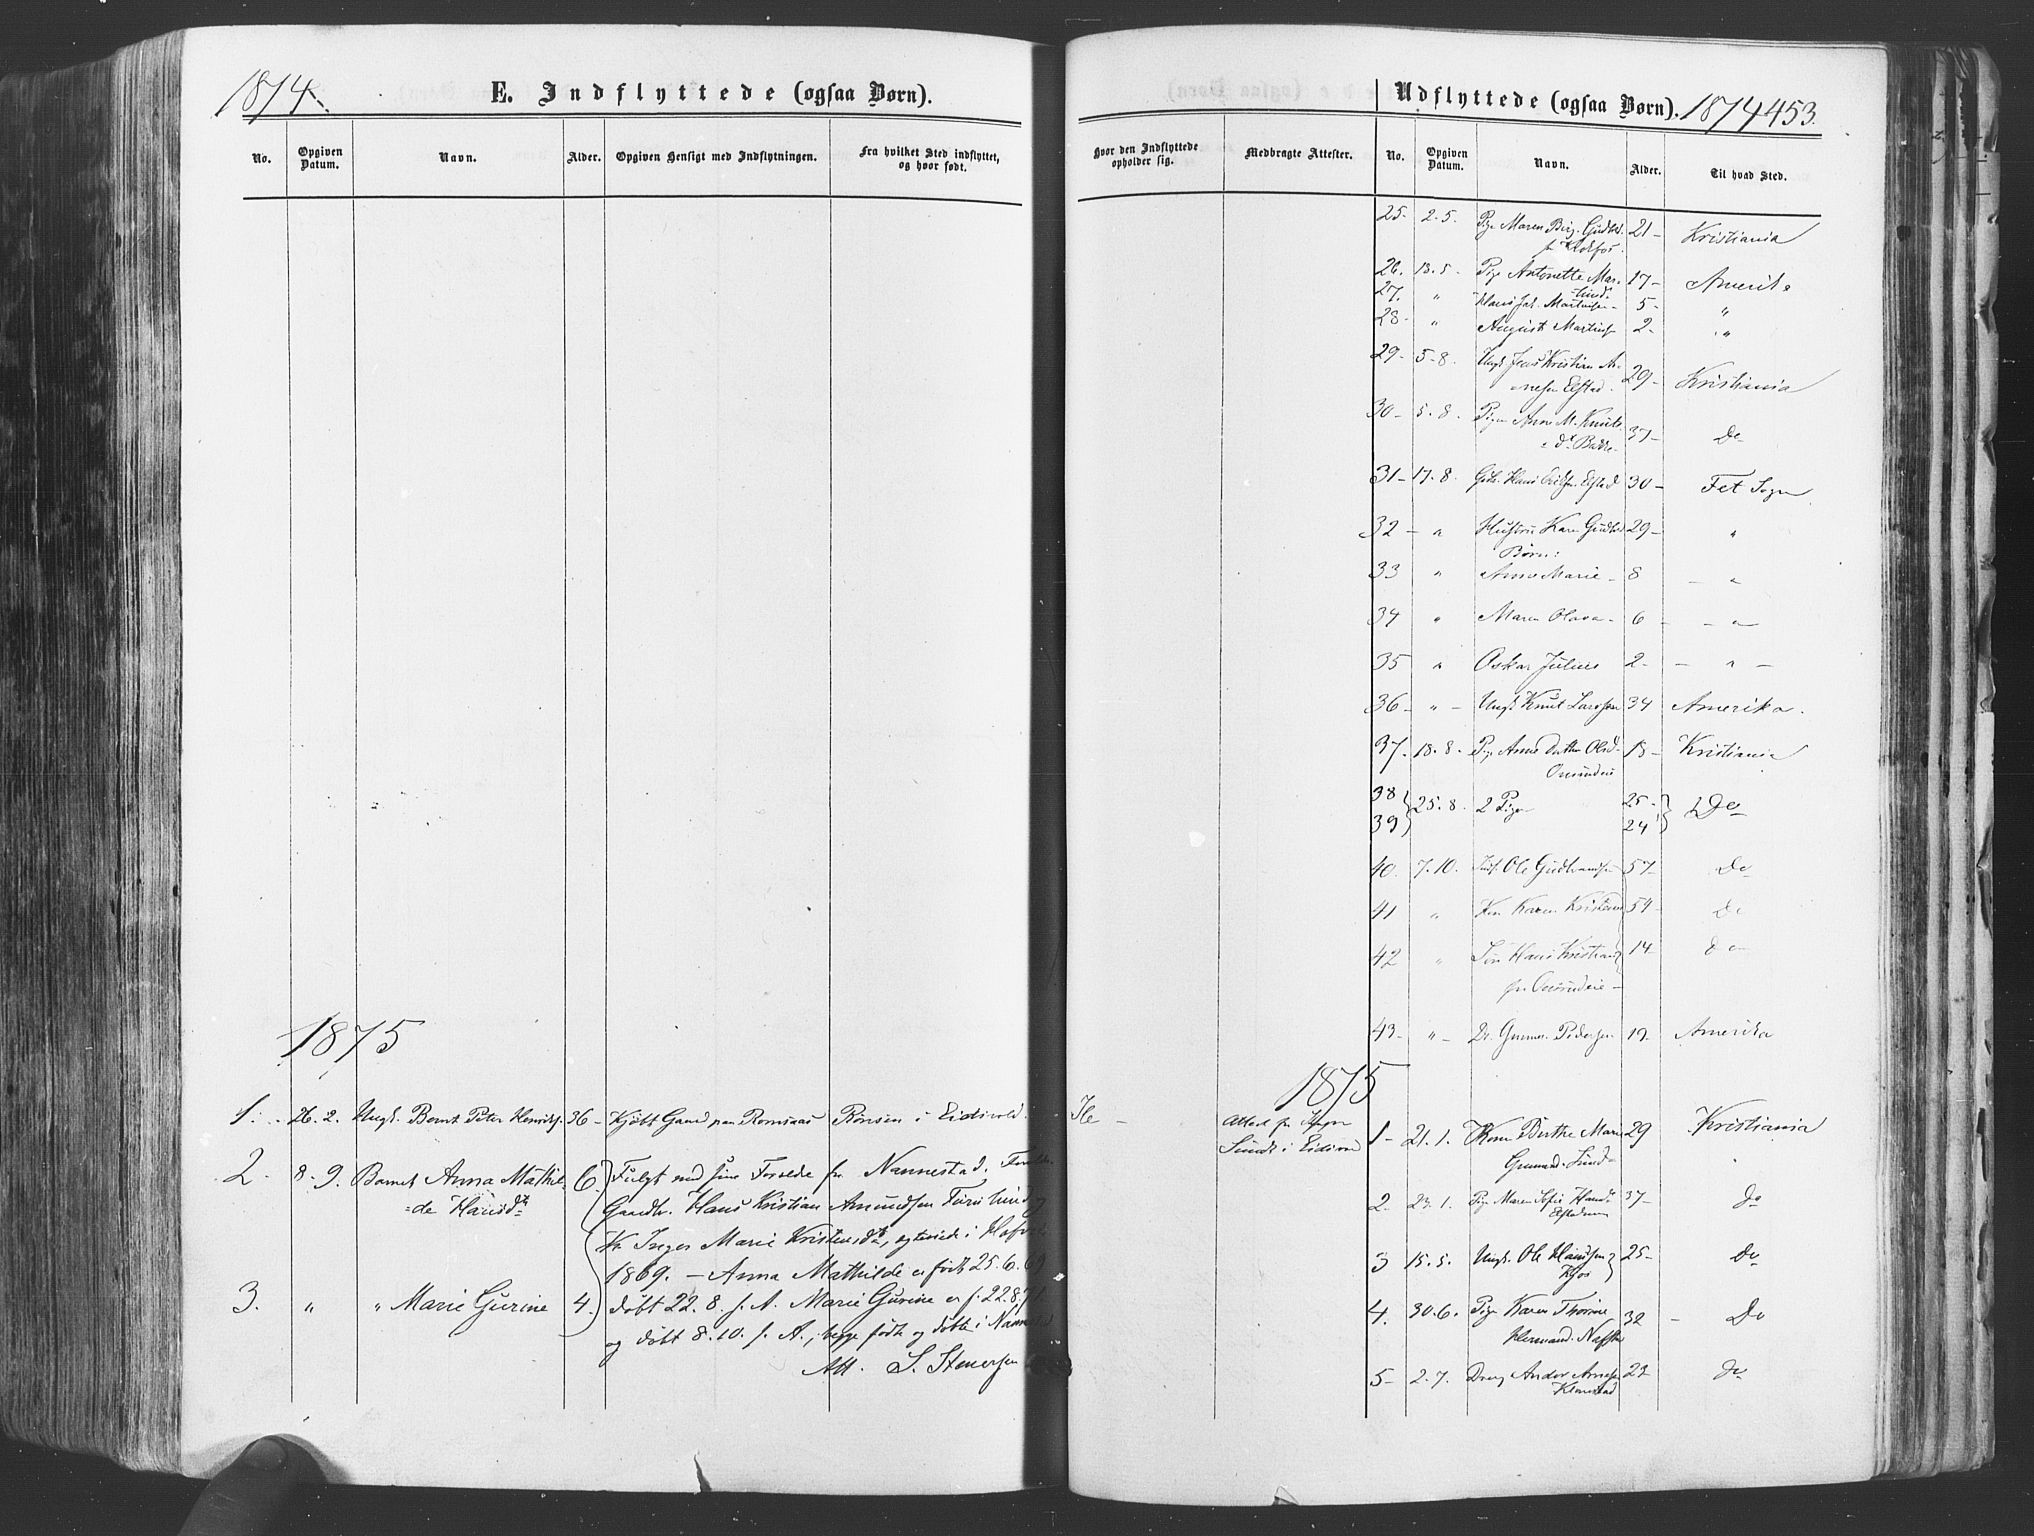 1874.
E. Indflyttede (ogsaa Børn).
No.
Opgiven Datum.
Navn.
Alder.
Opgiven Hensigt med Indflytningen.
Fra hvilket Sted indflyttet, og hvor født.
1875
1. 26. 2. Ungk. Bernt Peter Henriks. 36 - Kjøbt Gaard paa Romsaas Rønsen i Eidsvold.
2. 8. 9. Barnet Anna Mathil= 6 Fulgt med sine Forældre fra Nannestad. Foreldr.
=de Hansdr Gaardbr. Hans Kristian Amundsen Furulund og
K. Inger Marie Kristensdr, egteviede i
1869. - Anna Mathilde er født 25. 6. 69
3. " " Marie Gurine 4. døbt 22. 8. s. A. Marie Gurine er f. 22.8.71.
og døbt 8. 10. s. A., begge født og døbte i Nannestad
Att. S. Stenersen
Udflyttede (ogsaa Børn). 1874 453.
Hvor den Indflyttede opholder sig.
Medbragte Attester.
No.
Opgiven Datum.
Navn.
Alder.
Til hvad Sted.
25. 2. 5. Pige Maren Birg. Gudbr. 21 - Kristiania
fr
26. 13. 5. Pige Antonette Mar= 17 - Amerika
tinsd.
27. " Hans Joh. Martinsen 5 - "
28 - " August Martins 2 - "
29 - 5 - 8. Ungk. Jens Kristian Ar= 29 - Kristiania
=nesen Elstad.
30 - 5. 8. Pigen Anne M. Knuts= 37 - Do
=dr Bakke
31 - 17. 8. Gbr. Hans Erikssn. Elstad 30 - Fet Sogn
32 - " Hustru Karen Gudbr. 29 - "
Børn:
33 " Anne Marie - 8 - "
34 " Maren Olava - 6 - - "
35 " Oskar Julius 2 - - " -
36 - " - Ungk. Knut Larssen 34 Amerika.
37. 18. 8. Pige Anne Dorthe Olsd. 18 - Kristiania
38 25. 8. 2 Piger 25 - Do
39 24
40. 7. 10. Ole Gudbrandsen 57 - Do
41 " Kon Karen Kristens 54 - Do
42 " Søn Hans Kristian 14 - do
fr.
43 - " - Gunner Pedersen 19 - Amerika
1875
Ile - Attest fr. Sogn
i Eidsvold
1 - 21. 1. Kone Berthe Marie 29 Kristiania
2. 23. 1. Pige Maren Sofie Hansd. 37 - do
3 15. 5. Ungk. Ole Hansen 25 - Do
Kjos
4. 30. 6. Pige Karen Thorine 32 - Do
Hermand.
5 - 2. 7. Dreng Anders Arnesen 22 - Do